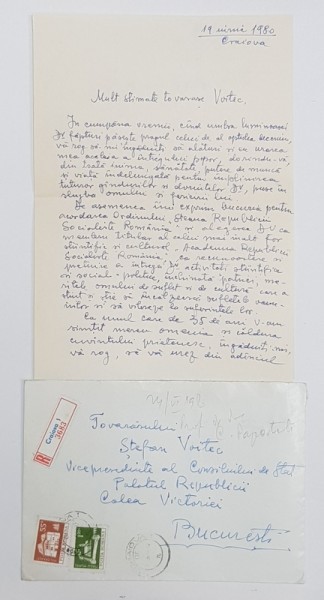 19 iunie 1980
Craiova
Mult stimate tovarase Voitec,
In cumpăna vremii, cînd umbra luminoasei
Dv făpturi păşeşte pragul celui de al optulea deceniu,
vă rog să-mi îngăduiti să alătur şi eu urarea
mea aceleia a întregului popor, dorindu-vă,
din toată inima, sănătate, putere de muncă
şi viată îndelungată pentru împlinirea
tuturor gîndurilor si dorintelor Dv, puse în
slujba omului si
De asemenea îmi exprim bucuria pentru
acordarea Ordinului "Steaua Republicii
Socialiste România" si alegerea D-v ca
membru titular al celui mai înalt for
stiintific si cultural - Academia Republicii
Socialiste România, ca recunoastere si
pretuire a întregii Dv activităti stiintifice
si social-politice, închinată patriei,
omului de suflet si de cultură care a
stiut si stie să
si să
Ca unul care de 35 de ani v-am
simtit mereu omenia si căldura
cuvîntului prietenesc, îngăduiti-mi,
vă rog, să vă urez din adîncul
Craiova 1
R 3683
Tovarăsului
Stefan Voitec
Vicepresedinte al Consiliului de Stat
Palatul Republicii
Calea Victoriei
Bucuresti
55